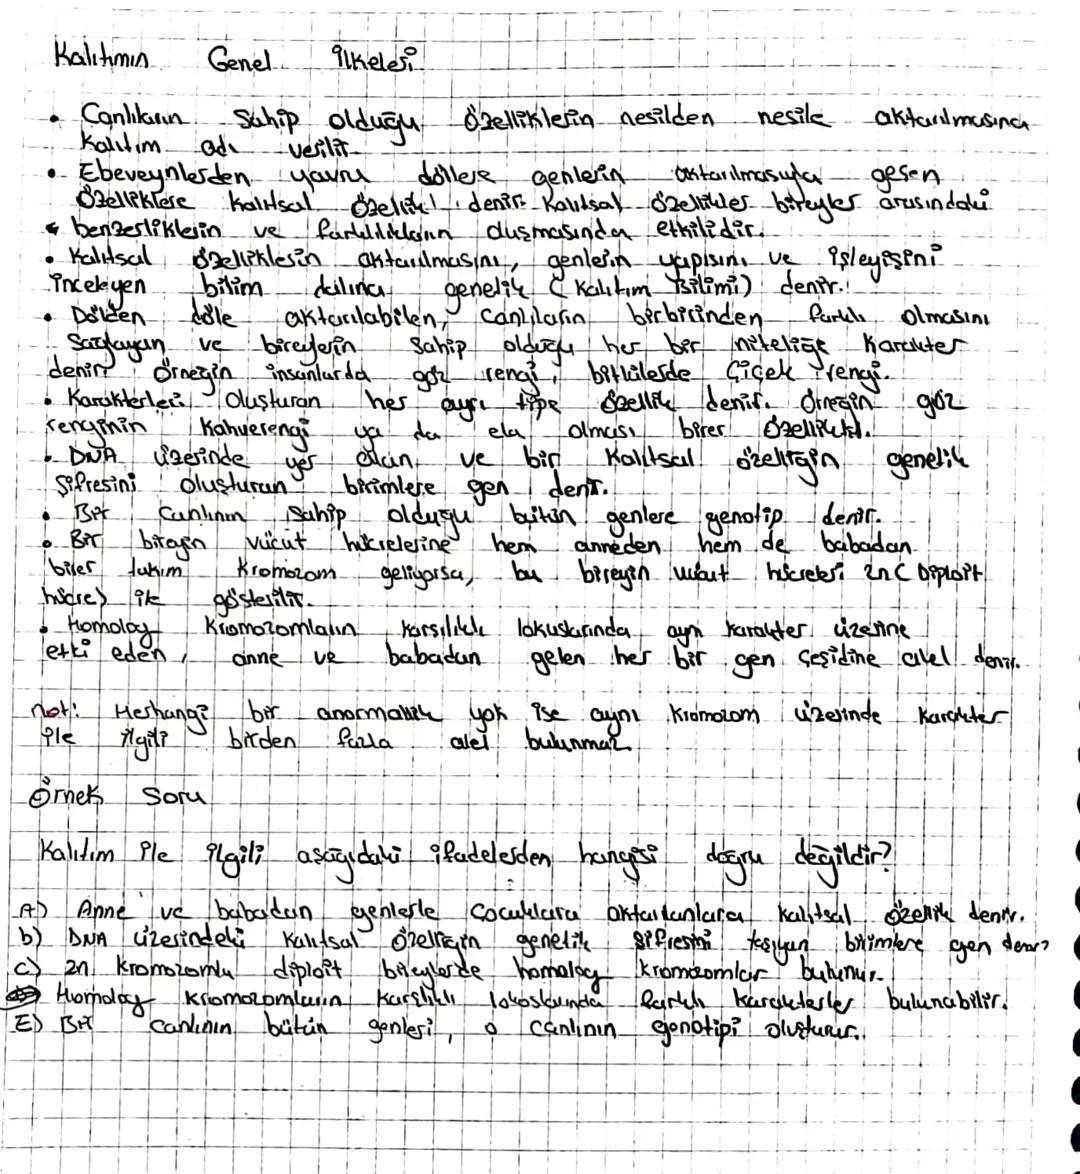 Kalıtımın Genel İlkeleri
• Canlıların sahip olduğu özelliklerin nesilden nesile aktarılmasına
kalıtım adı verilir.
• Ebeveynlerden yavru döllere genlerin aktarılmasıyla geçen
özelliklere kalıtsal özellik denir. Kalıtsal özellikler bireyler arasındaki
benzerliklerin ve farklılıkların oluşmasında etkilidir.
• Kalıtsal özelliklerin aktarılmasını, genlerin yapısını ve işleyişini
inceleyen bilim dalına genetik (Kalıtım Bilimi) denir.
• Dölden döle aktarılabilen, canlıların birbirinden farklı olmasını
sağlayan ve bireylerin sahip olduğu her bir niteliğe karakter
denir. Örneğin insanlarda göz rengi, bitkilerde çiçek rengi.
• Karakterleri oluşturan her ayrı tipe özellik denir. Örneğin göz
renginin kahverengi ya da ela olması birer özelliktir.
• DNA üzerinde yer alan ve bir kalıtsal özelliğin genetik
şifresini oluşturan birimlere gen denir.
• Bir canlının sahip olduğu bütün genlere genotip denir.
• Bir bireyin vücut hücrelerine hem anneden hem de babadan
birer takım kromozom geliyorsa, bu bireyin vücut hücreleri 2n (Diploit
hücre) ile gösterilir.
• Homolog kromozomların karşılıklı lokuslarında aynı karakter üzerine
etki eden, anne ve babadan gelen her bir gen çeşidine alel denir.
not: Herhangi bir anormallik yok ise aynı kromozom üzerinde karakter
ile ilgili birden fazla alel bulunmaz.
Örnek Soru
Kalıtım ile ilgili aşağıdaki ifadelerden hangisi doğru değildir?
A) Anne ve babadan genlerle çocuklara aktarılanlara kalıtsal özellik denir.
b) DNA üzerindeki kalıtsal özelliğin genetik şifresini taşıyan birimlere gen denir?
c) 2n kromozomlu diploit bireylerde homolog kromozomlar bulunur.
Homolog kromozomların karşılıklı lokoslarında farklı karakterler bulunabilir.
E) Bir canlının bütün genleri, o canlının genotipi oluşturur.